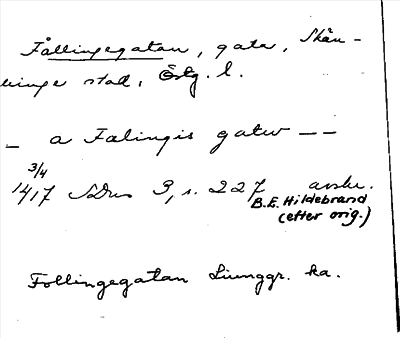 Fållingegatan, gata, Skän-
ninge stad, Östg. l.
– a Falingis gatw – –
3/4
1417 SDns 3, s. 227 avskr.
B.E. Hildebrand
(efter orig.)
Follingegatan Ljunggr. ka.